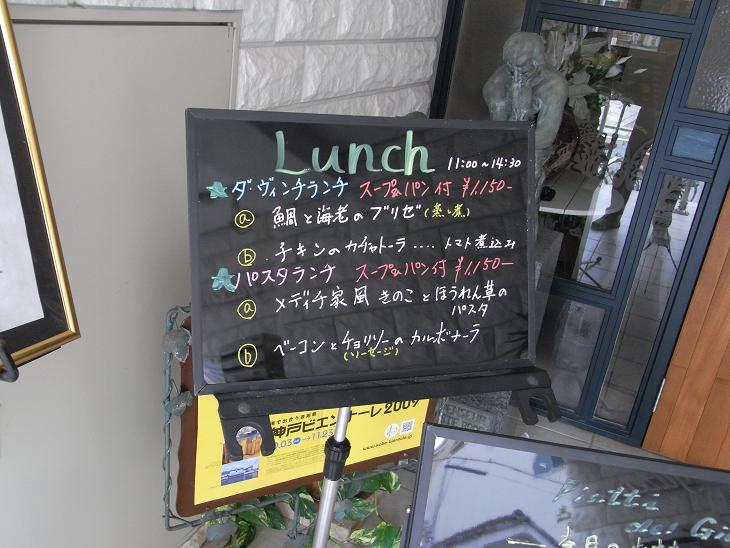 Lunch 11:00~14:30
★ダ・ヴィンチランチ スープ&パン付 ¥1,150-
ⓐ 鯛と海老のブリゼ(蒸し煮)
ⓑ チキンのカチャトーラ.... トマト煮込み
★パスタランチ スープ&パン付 ¥1,150-
ⓐ メディチ家風 きのことほうれん草の
パスタ
ⓑ ベーコンとチョリソーのカルボナーラ
(ソーセージ)
神戸ビエンナーレ2009
Piatti
del Gi